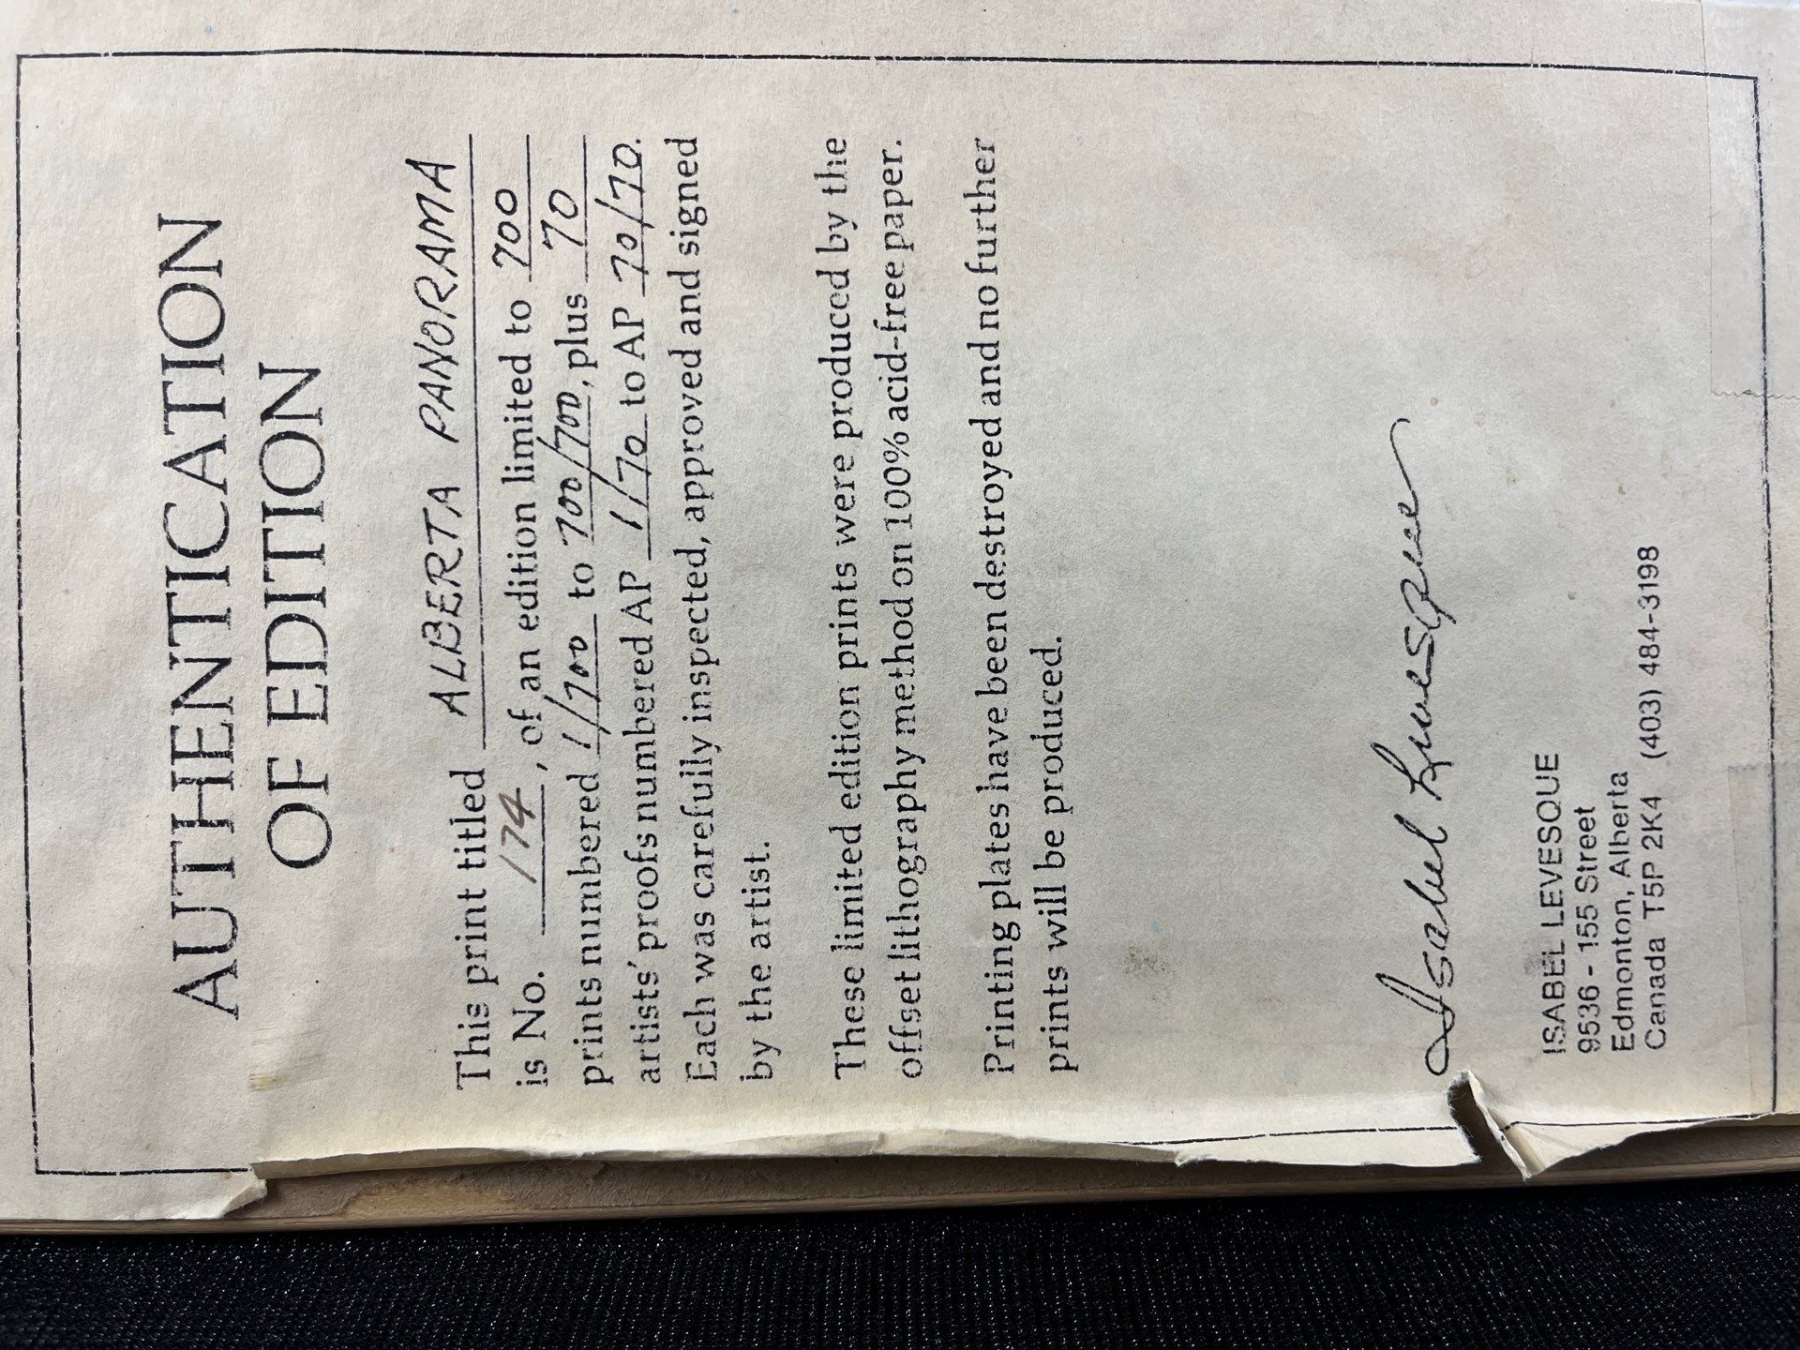 AUTHENTICATION
OF EDITION
This print titled ALBERTA PANORAMA
is No. 174, of an edition limited to 700
prints numbered 1/700 to 700/700, plus 70
artists' proofs numbered AP 1/70 to AP 70/70.
Each was carefully inspected, approved and signed
by the artist.
These limited edition prints were produced by the
offset lithography method on 100% acid-free paper.
Printing plates have been destroyed and no further
prints will be produced.
Isabel Levesque
ISABEL LEVESQUE
9536 - 155 Street
Edmonton, Alberta
Canada T5P 2K4 (403) 484-3198